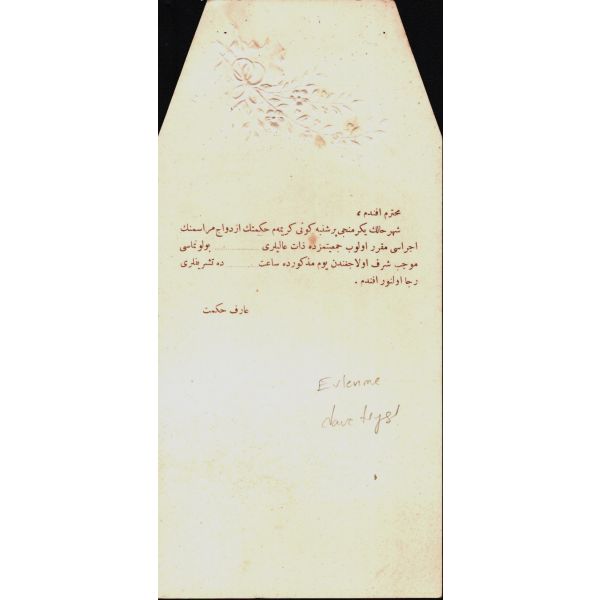 محترم افندم ،
شهر حالك يكرمنجى پرشنبه كونى كريمه‌م حكمتك ازدواج مراسمنك
اجراسى مقرر اولوب جمعيتمزده ذات عاليلرى .............. بولونماسى
موجب شرف اولاجغندن يوم مذكورده ساعت .......... ده تشريفلرى
رجا اولنور افندم .
عارف حكمت
Evlenme